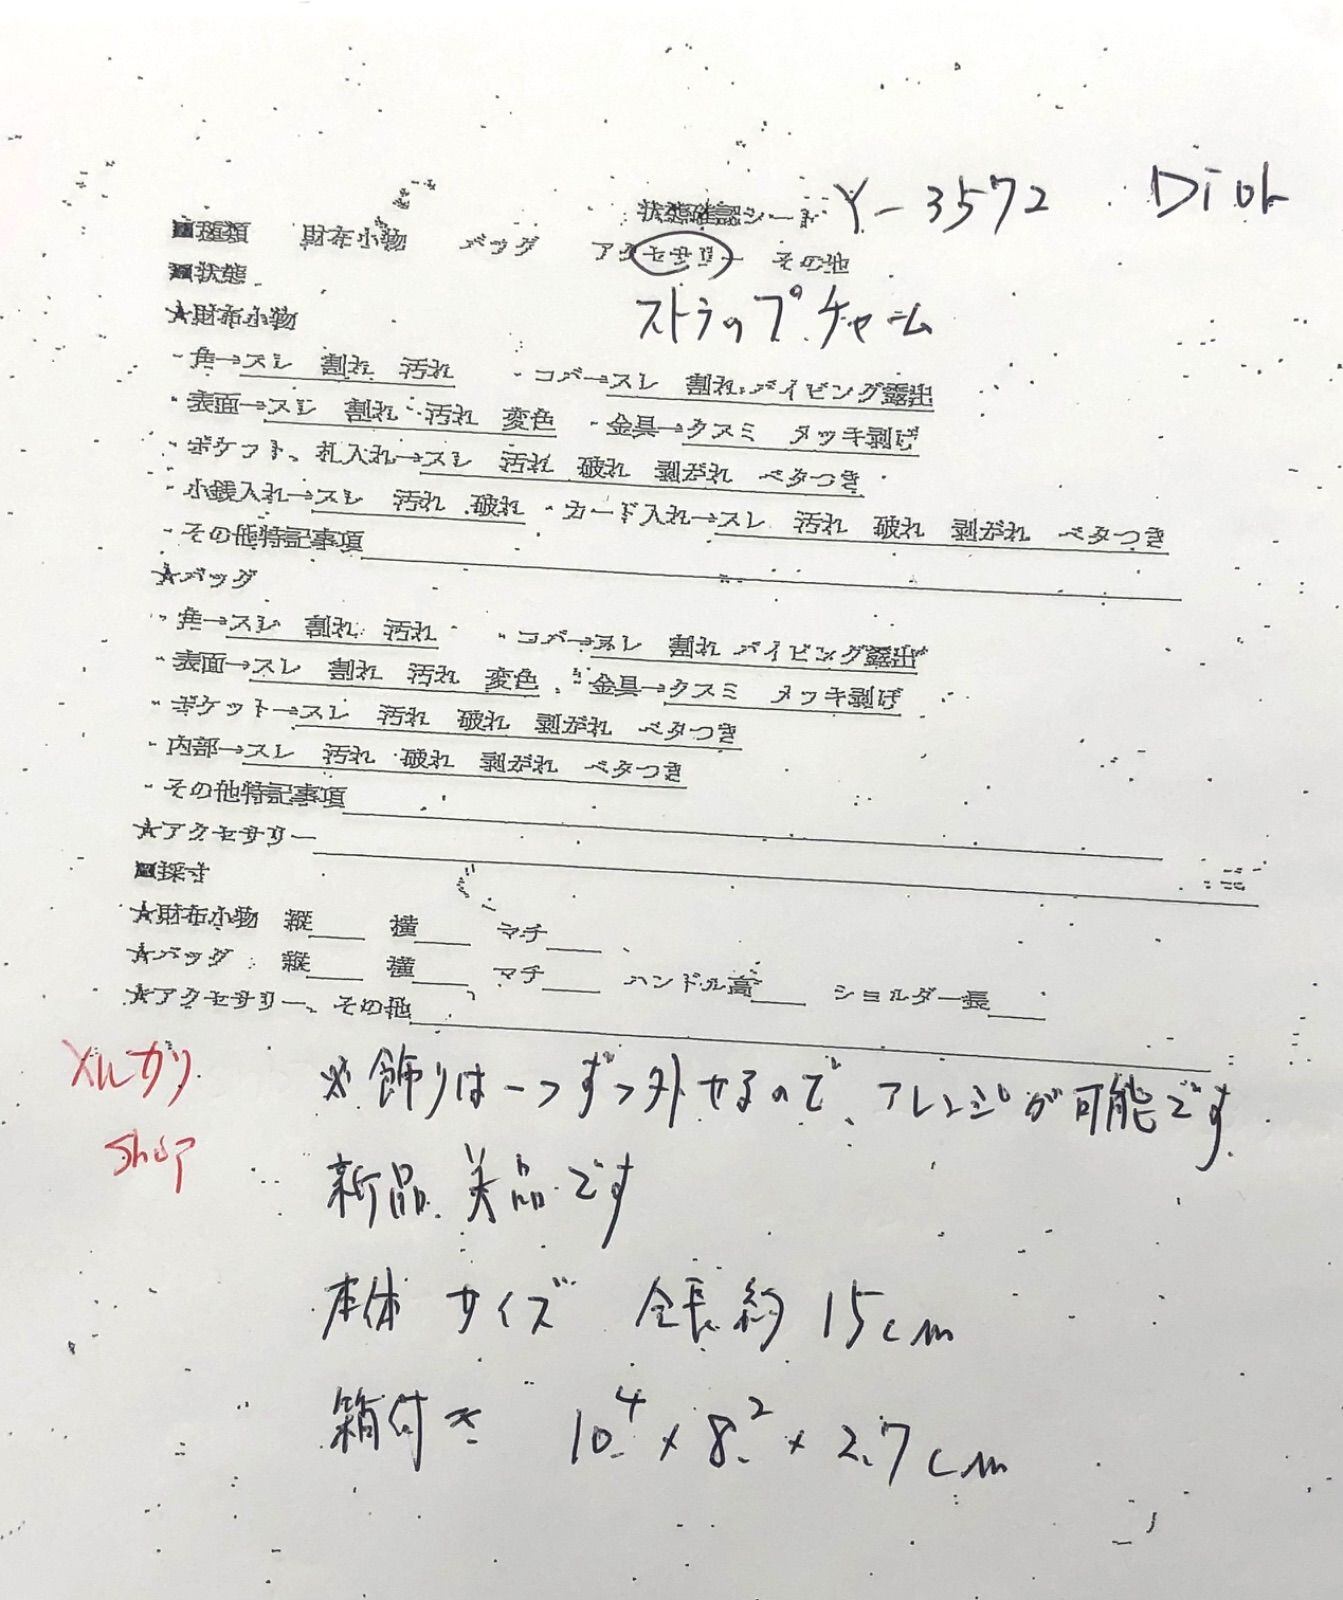 状態確認シート Y-3572 Dior
■種類 財布小物 バッグ アクセサリー その他
■状態 ストラップチャーム
★財布小物
・角→スレ 割れ 汚れ ・コバ→スレ 割れ パイピング露出
・表面→スレ 割れ 汚れ 変色 ・金具→クスミ メッキ剥げ
・ポケット、札入れ→スレ 汚れ 破れ 剥がれ ベタつき
・小銭入れ→スレ 汚れ 破れ ・カード入れ→スレ 汚れ 破れ 剥がれ ベタつき
・その他特記事項
★バッグ
・角→スレ 割れ 汚れ ・コバ→スレ 割れ パイピング露出
・表面→スレ 割れ 汚れ 変色 ・金具→クスミ メッキ剥げ
・ポケット→スレ 汚れ 破れ 剥がれ ベタつき
・内部→スレ 汚れ 破れ 剥がれ ベタつき
・その他特記事項
★アクセサリー
■採寸
★財布小物 縦 横 マチ
★バッグ 縦 横 マチ ハンドル高 ショルダー長
★アクセサリー、その他
メルカリ ※飾りは一つずつ外せるので、アレンジが可能です
Shop 新品、美品です
本体 サイズ 全長約 15cm
箱付き 10.4×8.2×2.7cm